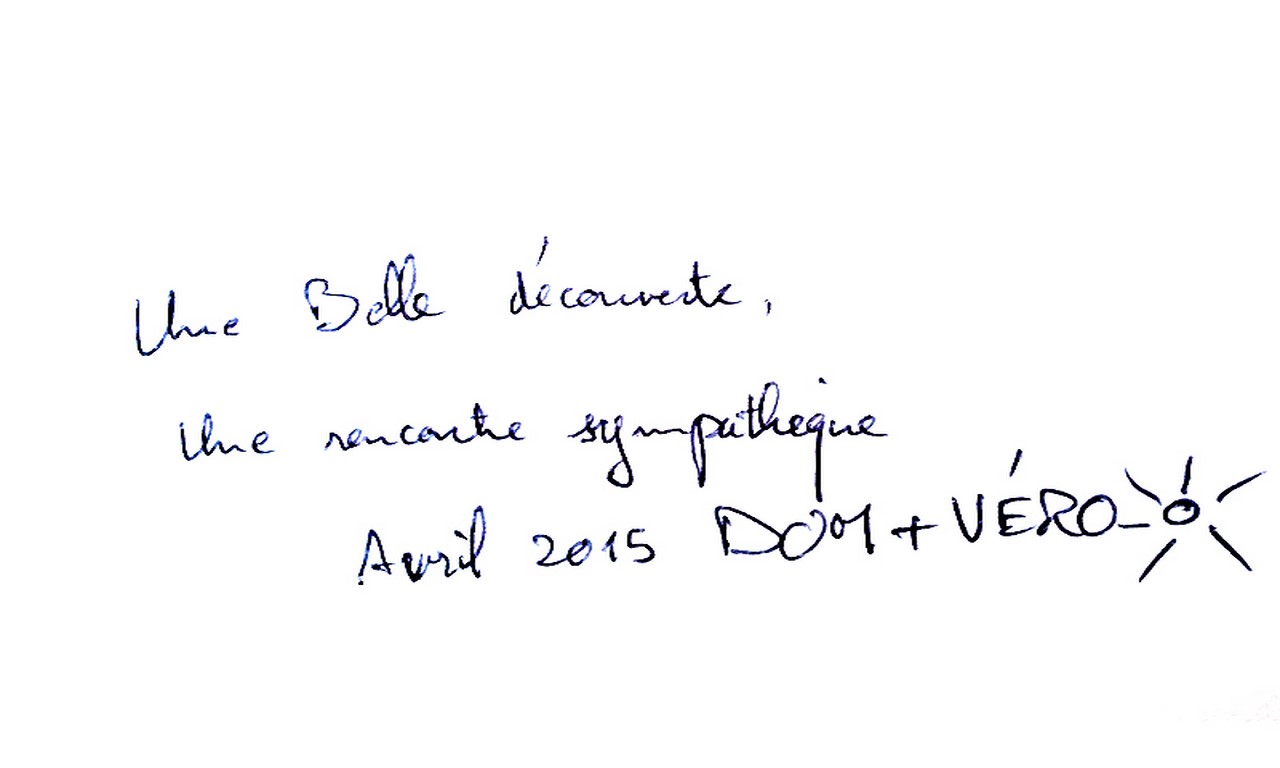 Une Belle découverte,
Une rencontre sympathique
Avril 2015 DOM + VÉRO